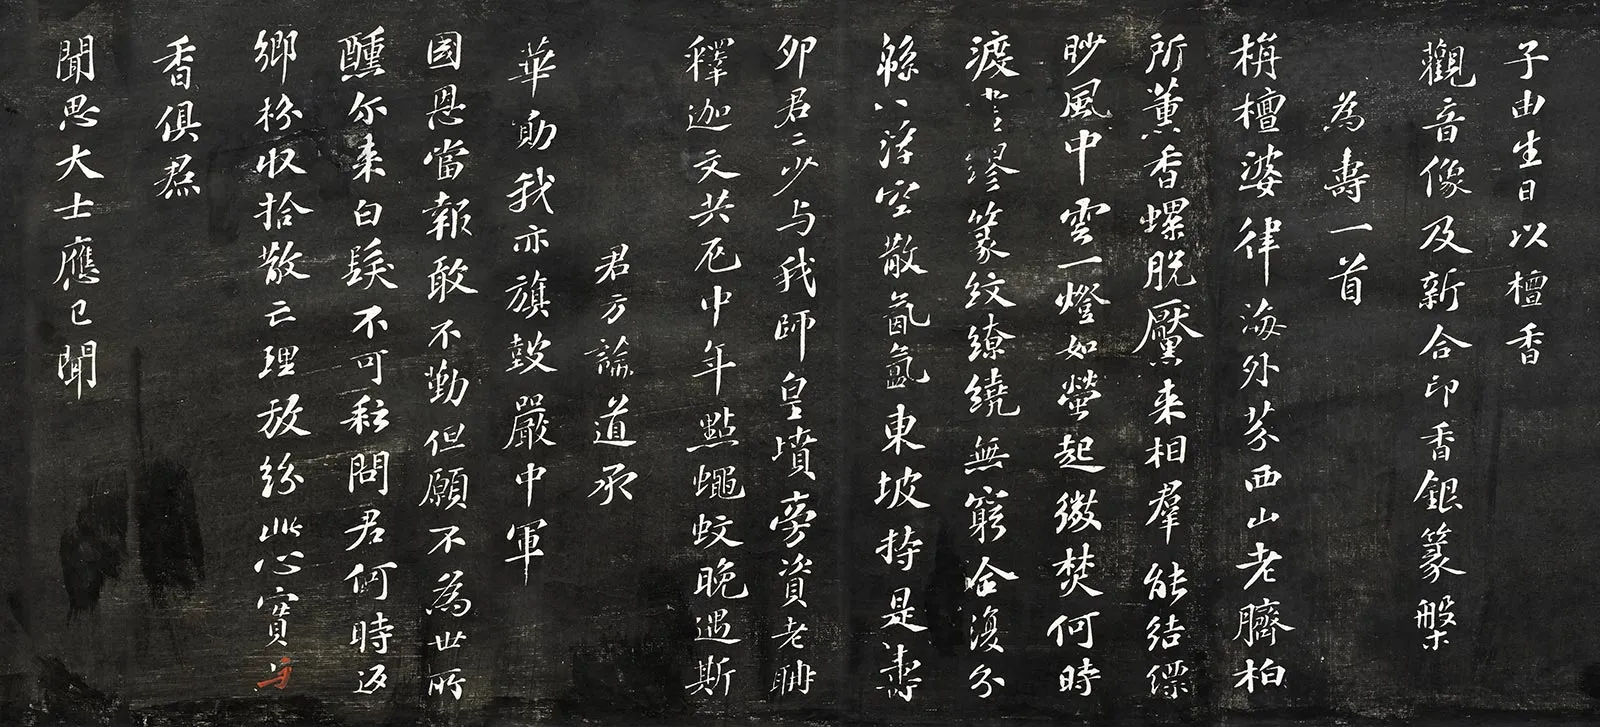 子由生日以檀香
觀音像及新合印香銀篆槃
為壽一首
栴檀婆律海外芬西山老臍柏
所薰香螺脫黶来相羣能結縹
眇風中雲一燈如螢起微焚何時
渡盡繆篆紋繚繞無窮合復分
緜八浮空散氤氳東坡持是壽
卯君二少与我師皇墳旁資老耼
釋迦文共厄中年點蠅蚊晚遇斯
君方論道承
華勛我亦旗鼓嚴中軍
國恩當報敢不勤但願不為世所
醺尔来白髮不可耘問君何時返
鄉枌収拾散亡理放紛此心實与
香俱焄
聞思大士應已聞